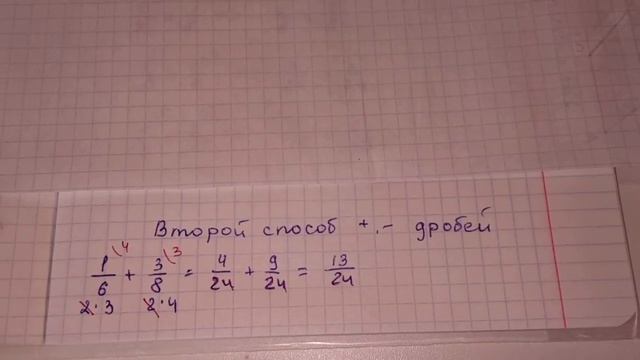 Второй способ +,- дробей
1/6 \4 + 3/8 \3 = 4/24 + 9/24 = 13/24
2·3 2·4